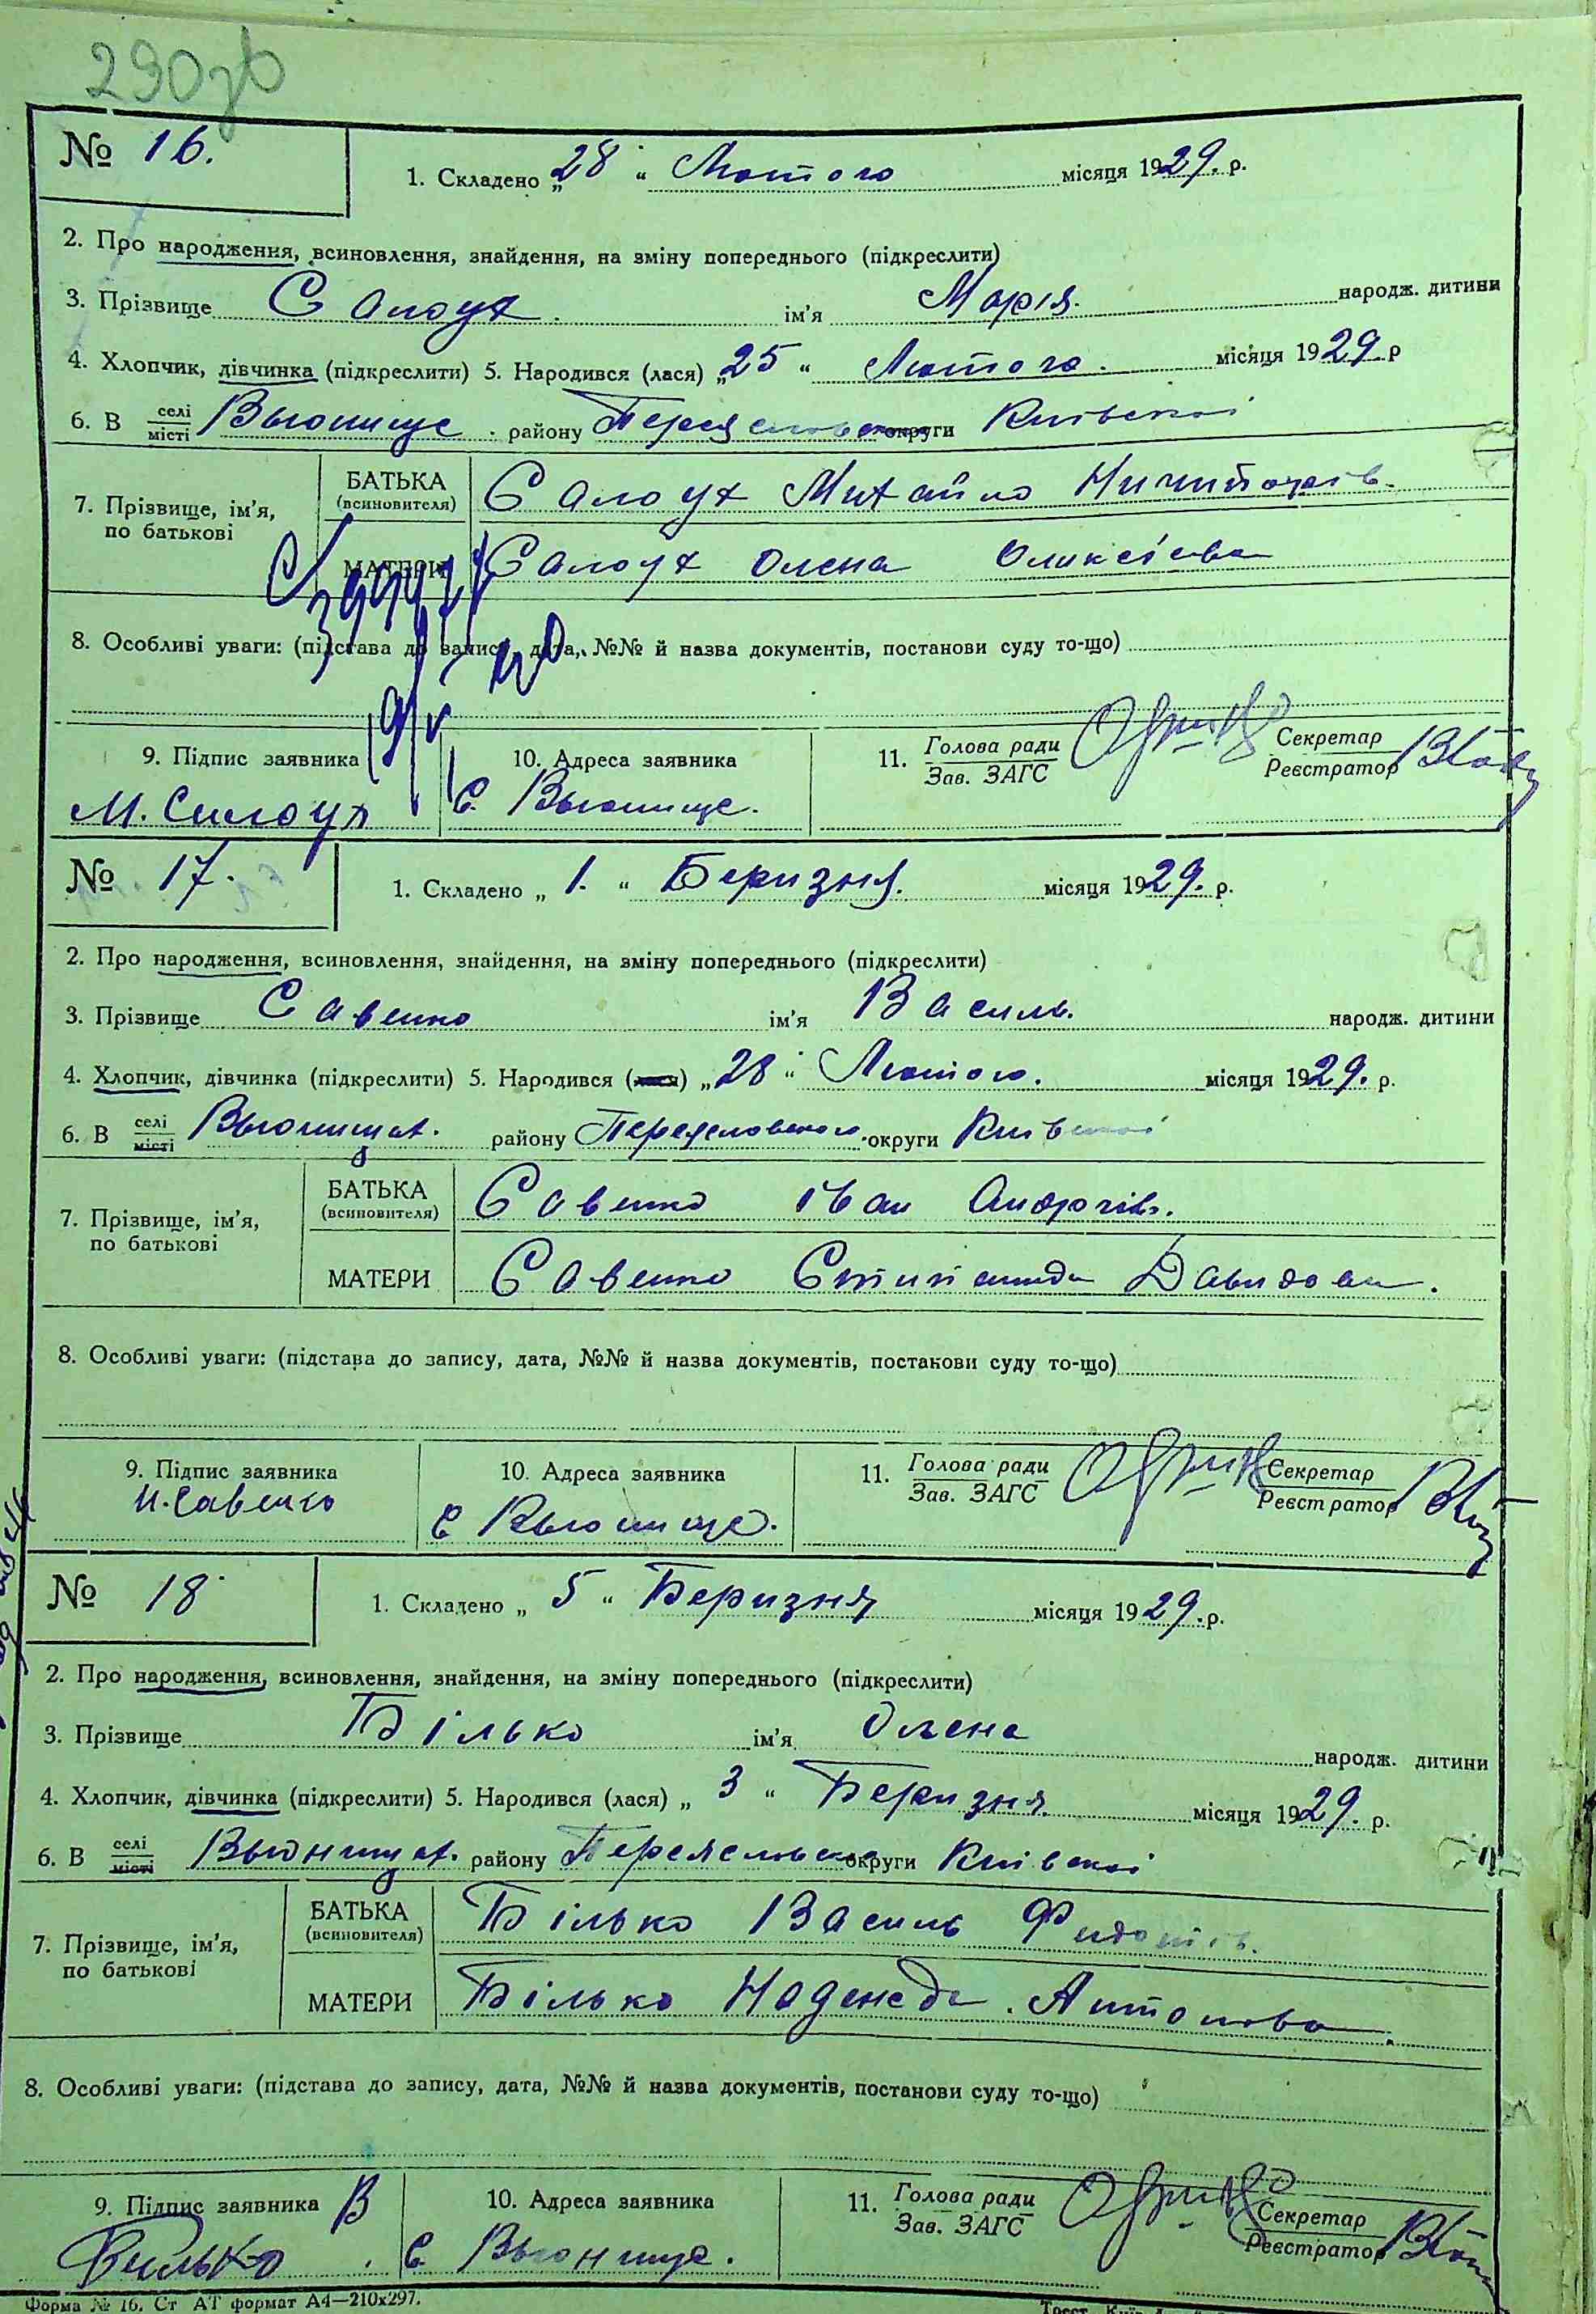 290зв
№ 16.
1. Складено „28“ Лютого місяця 1929. р.
2. Про народження, всиновлення, знайдення, на зміну попереднього (підкреслити)
3. Прізвище Салоух ім'я Марія. народж. дитини
4. Хлопчик, дівчинка (підкреслити) 5. Народився (лася) „25“ Лютого. місяця 1929. р
6. В селі місті Вьюнище району Переяславськ округи Київської
7. Прізвище, ім'я, по батькові
БАТЬКА (всиновителя) Салоух Михайло Ничипорів.
МАТЕРИ Салоух Олена Оликсіева
8. Особливі уваги: (підстава до запису, дата, №№ й назва документів, постанови суду то-що)
9. Підпис заявника 10. Адреса заявника 11. Голова ради Зав. ЗАГС Секретар Реєстратор
М. Салоух С. Вьюнище.
№ 17.
1. Складено „1.“ Беризня. місяця 1929. р.
2. Про народження, всиновлення, знайдення, на зміну попереднього (підкреслити)
3. Прізвище Савенко ім'я Василь. народж. дитини
4. Хлопчик, дівчинка (підкреслити) 5. Народився (лася) „28“ Лютого. місяця 1929. р.
6. В селі місті Вьюнищах. району Переяславского округи Київської
7. Прізвище, ім'я, по батькові
БАТЬКА (всиновителя) Савенко Іван Андріїв.
МАТЕРИ Савенко Стипанида Давидова.
8. Особливі уваги: (підстава до запису, дата, №№ й назва документів, постанови суду то-що)
9. Підпис заявника 10. Адреса заявника 11. Голова ради Зав. ЗАГС Секретар Реєстратор
И. Савенко С Вьюнище.
№ 18
1. Складено „5“ Беризня місяця 1929. р.
2. Про народження, всиновлення, знайдення, на зміну попереднього (підкреслити)
3. Прізвище Білько ім'я Олена народж. дитини
4. Хлопчик, дівчинка (підкреслити) 5. Народився (лася) „3“ Беризня. місяця 1929. р.
6. В селі місті Вьюнищах. району Переяславськ округи Київської
7. Прізвище, ім'я, по батькові
БАТЬКА (всиновителя) Білько Василь
МАТЕРИ Білько Надежда. Антонова.
8. Особливі уваги: (підстава до запису, дата, №№ й назва документів, постанови суду то-що)
9. Підпис заявника 10. Адреса заявника 11. Голова ради Зав. ЗАГС Секретар Реєстратор
В Билько С. Вьюнище.
Форма № 16. Ст АТ формат А4—210х297.